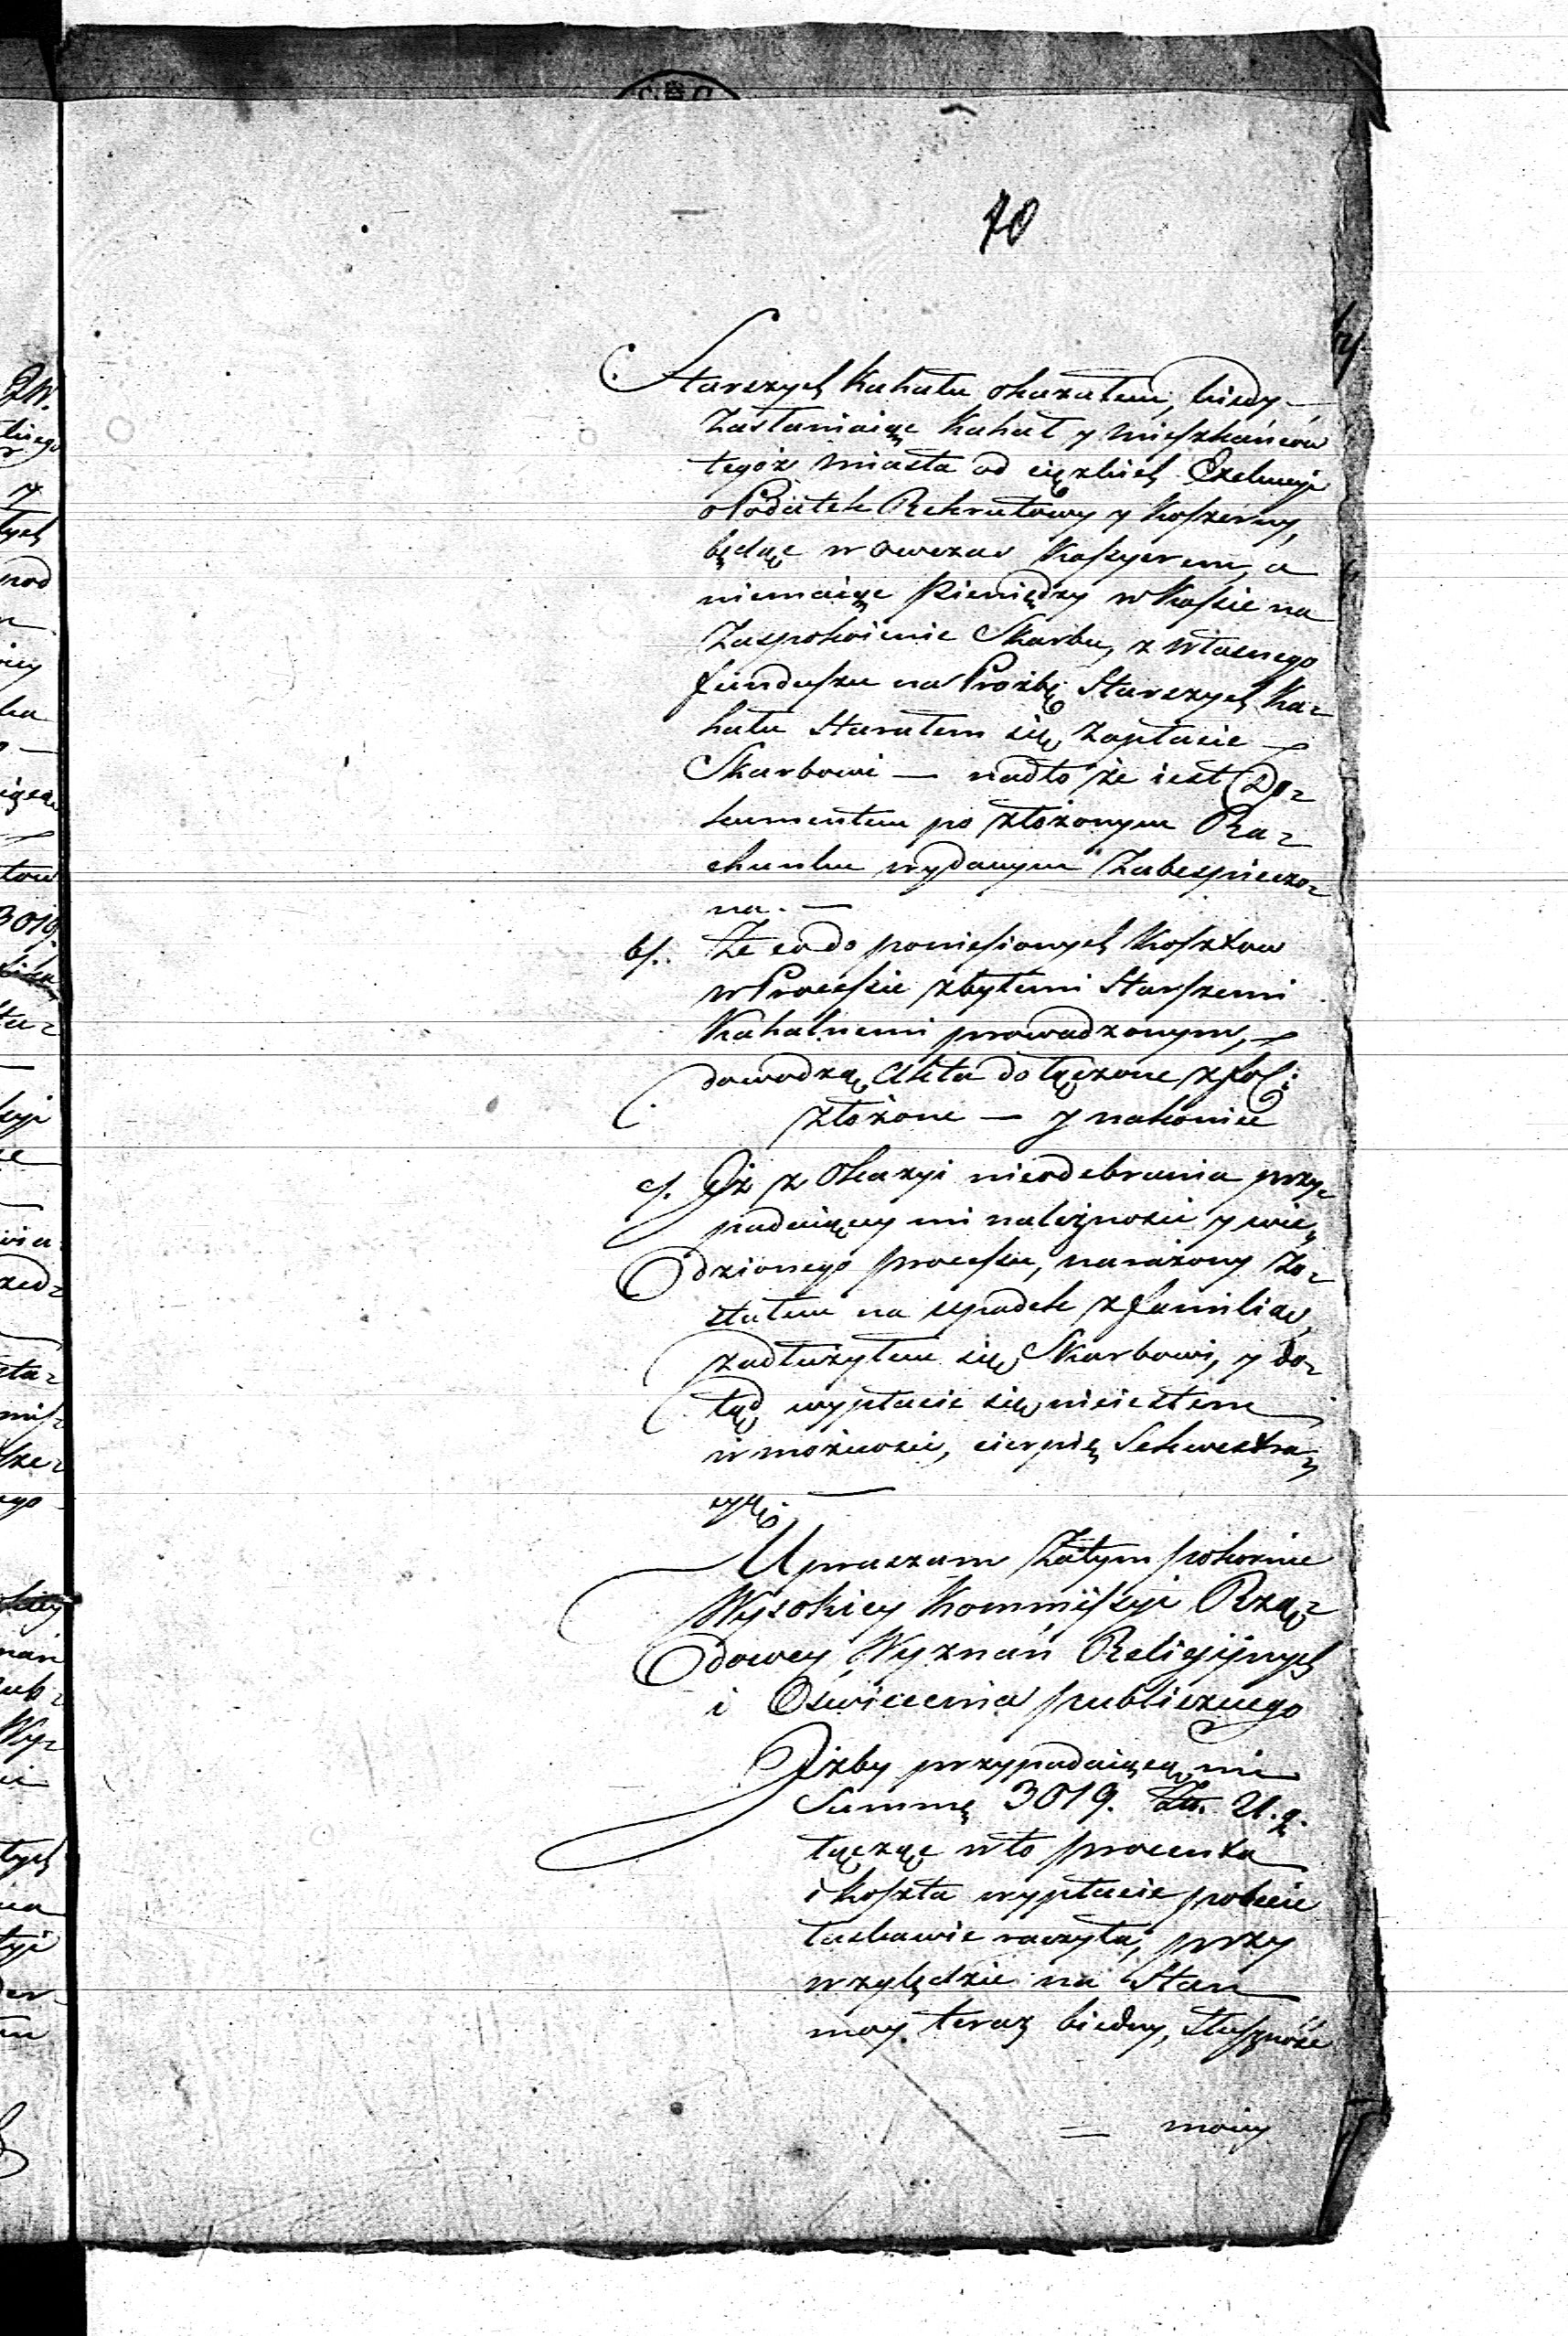 70
Starszych Kahału okazałem, kiedy —
Zasłaniaiąc Kahał y Mieszkańców
tegóż Miasta od cięzkich Exekucyi
o Podatek Rekrutowy y Koszerny,
będąc w owczas Kassyerem, a
niemaiąc Pieniędzy w Kassie na
Zaspokoienie Skarbu, z własnego
funduszu na Prożbę Starszych Ka=
hału Starałem się zapłacic —
Skarbowi — nadto że iest Do=
kumentem po złożonym Ra=
chunku wydanym Zabespieczo=
na. —
b/. Że co do poniesionych Kosztow
w Processie z bytemi Starszemi
Kahalnemi prowadzonym, —
dowodzą Akta dołączone z fol:
złożone — y nakoniec
c/. Iż z Okazyi nieodebrania przy=
padaiącey mi należnosci y wie=
dzionego processu, narażony Zo=
stałem na upadek z familią,
zadłużyłem się Skarbowi, y do=
tąd wypłacic się nieiestem
w możnosci, cierpię Sekwestra=
cyą. —
Upraszam Zatym pokornie
Wysokiey Kommissyi Rzą=
dowey Wyznań Religijnych
i Oświecenia publicznego
Iżby przypadaiącą mi
Summę 3019. Złt. 21. g.
łącząc w to procenta
i koszta wypłacic polecic
łaskawie raczyła, przy
względzie na Stan
moy teraz biedny, słuszność
= moiey